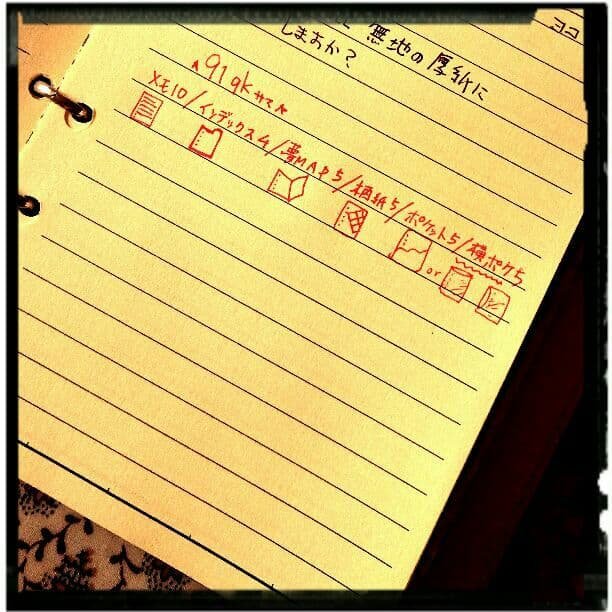 ヨコ
無地の厚紙に
しますか?
91gkサマへ
メモ10/インデックス4/夢MAP5/柄紙5/ポケット5/横ポケ5
or